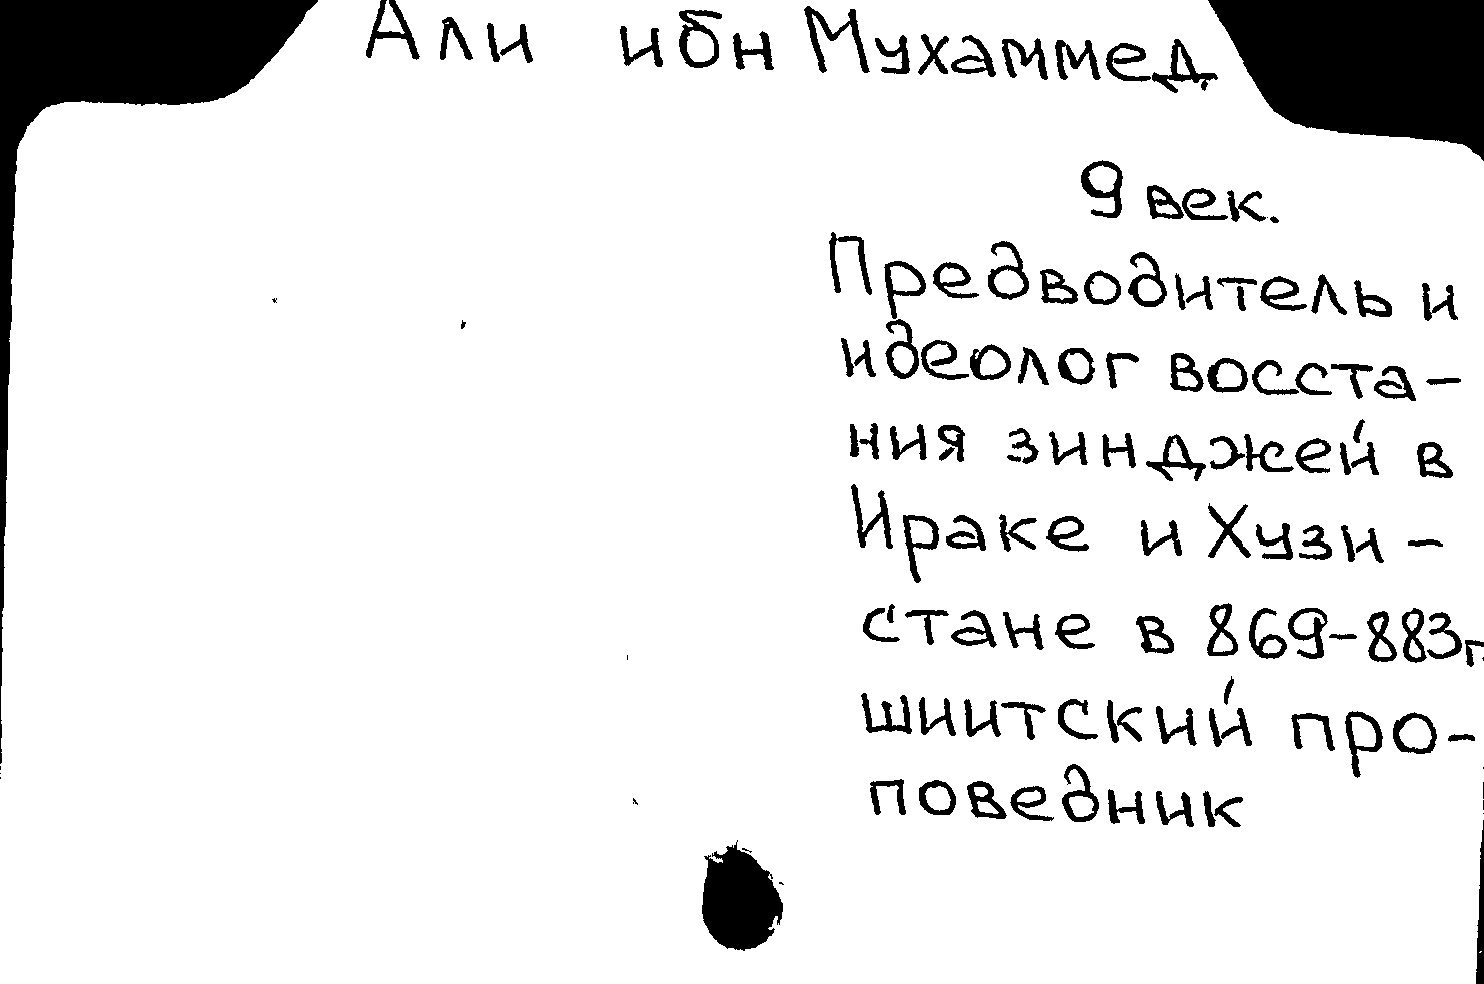 Али ибн Мухаммед
9 век.
Предводитель и
идеолог восста-
ния зинджей в
Ираке и Хузи-
стане в 869-883г
шиитский про-
поведник